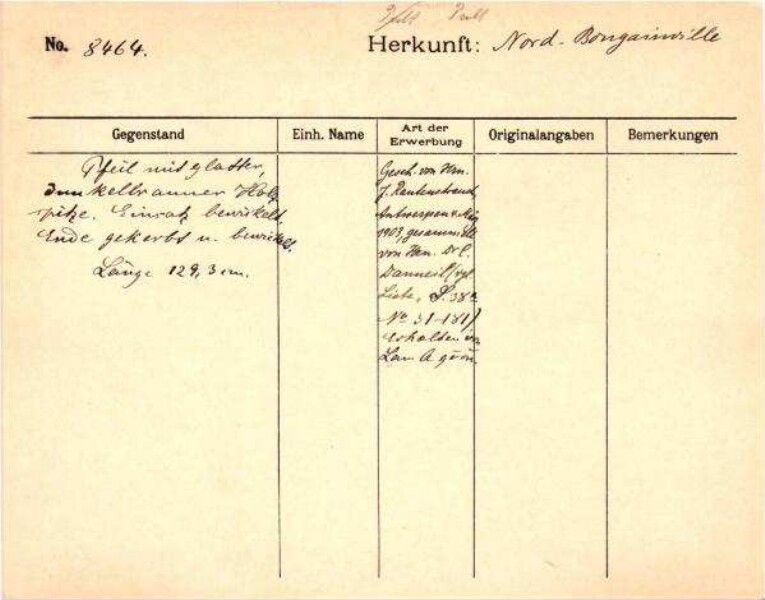 No. 8464.
Herkunft: Nord-Bougainville
Gegenstand
Einh. Name
Art der Erwerbung
Originalangaben
Bemerkungen
Pfeil mit glatter,
dunkelbrauner Holz
spitze. Einsatz bewickelt,
Ende gekerbt u. bewickelt.
Länge 129,3 cm.
Gesch. von Hrn.
J. Rautenstrauch
Antwerpen 4. Mai
1903, gesammelt
von Hrn. Dr C.
Danneil (vgl
Liste, S. 38a
No 31-181)
erhalten im